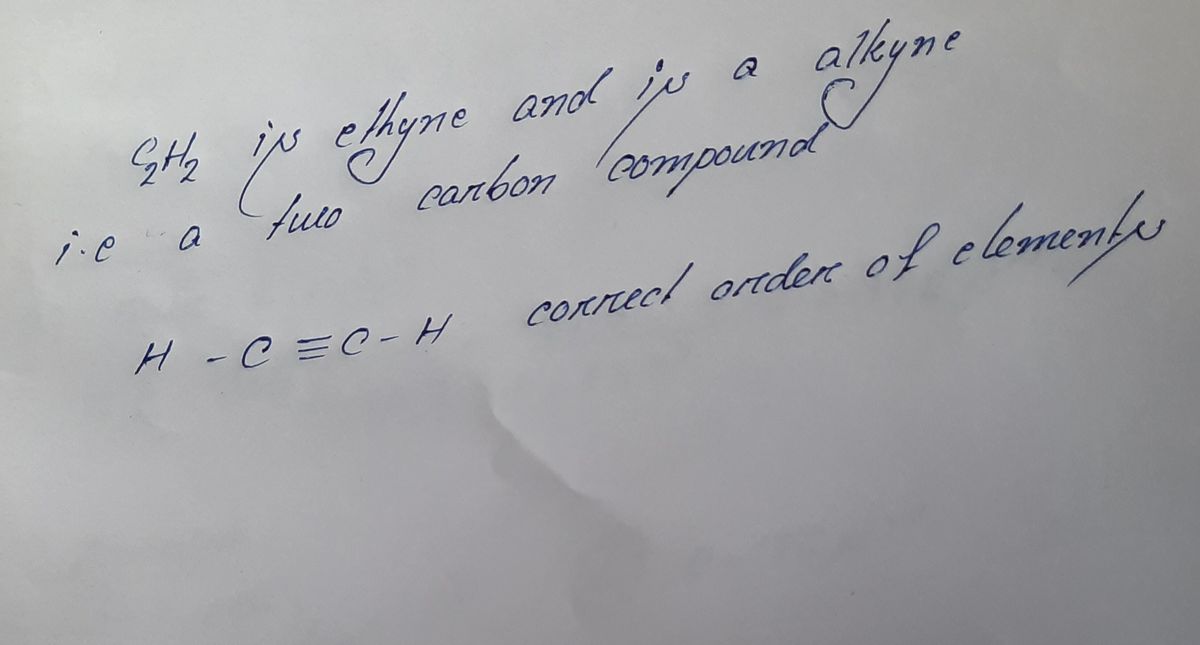 C₂H₂ is ethyne and is a alkyne
i.e a two carbon compound
H - C ≡ C - H correct order of elements